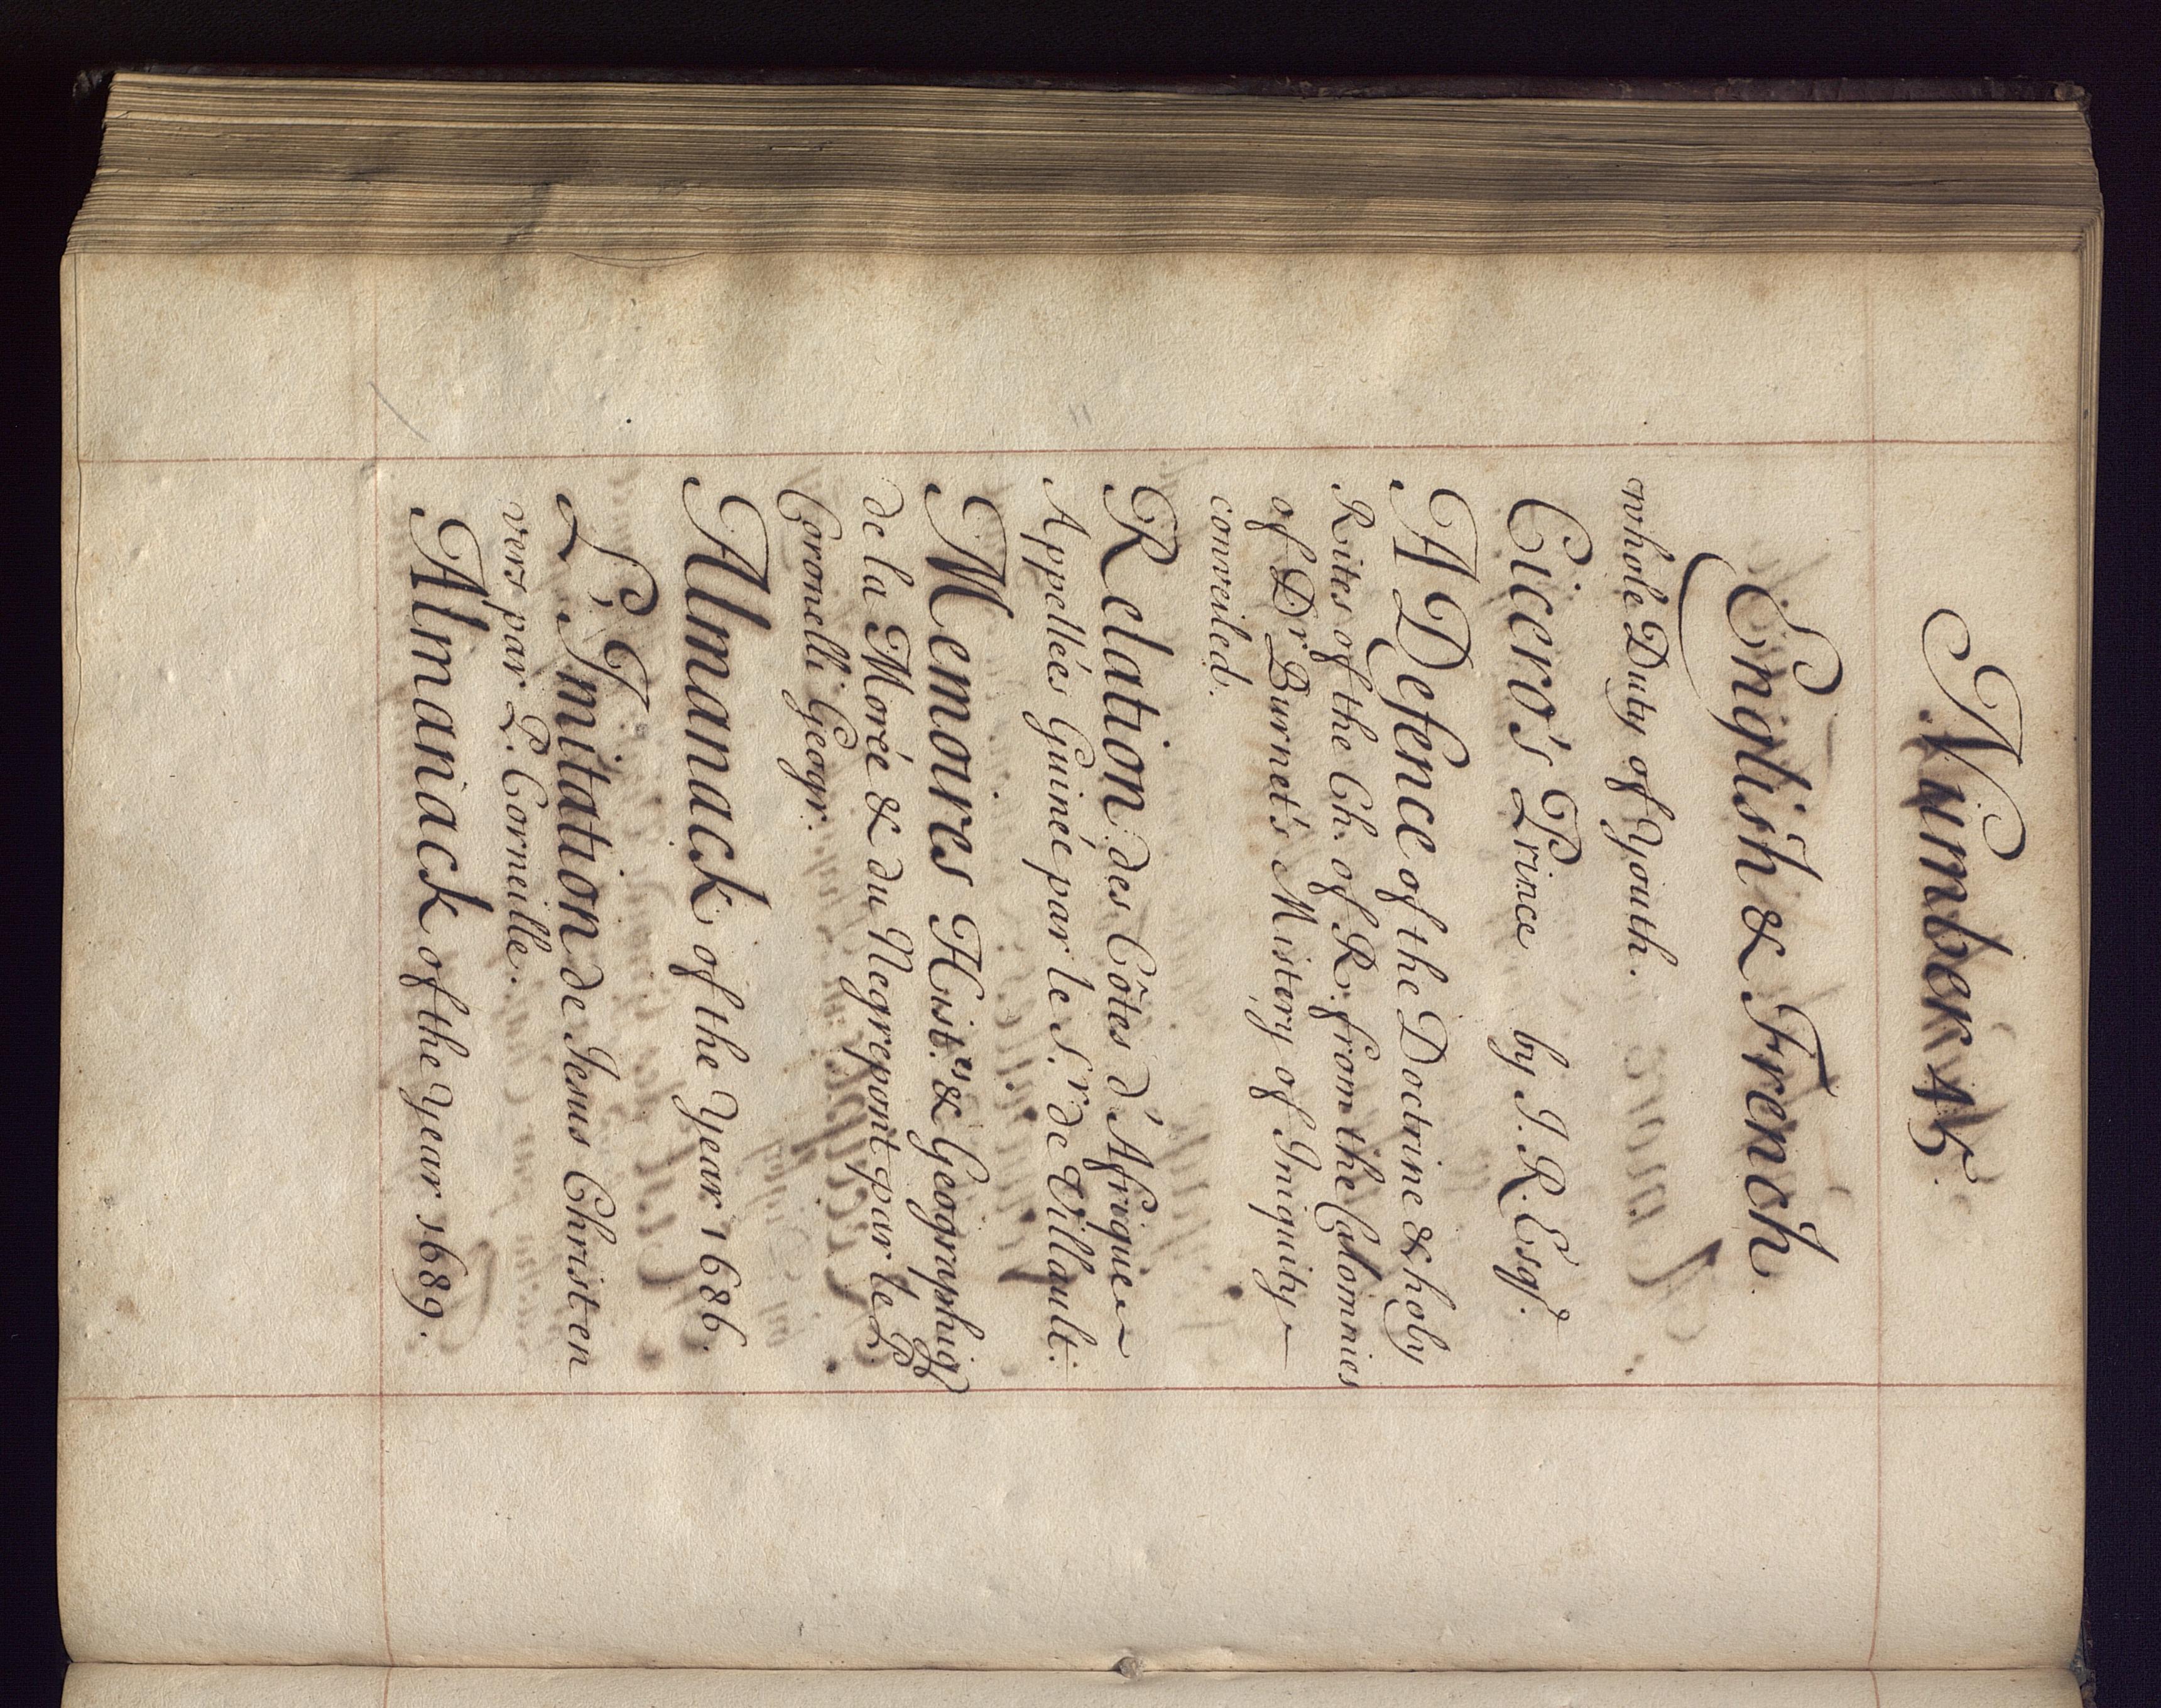 Number 45.
English & French.
whole Duty of Youth.
Cicero's Prince by J. R. Esqr.
A Defence of the Doctrine & holy
Rites of the Ch. of R. from the Calomnies
of Dr. Burnet's Mistery of Iniquity
conveiled.
Relation des Côtes d'Afrique
Appellées Guinée par le Sr. de Villault.
Memoires Hist.es & Geographiq
de la Moré & du Negrepont par le P.
Coronelli Geogr.
Almanack of the Year 1686.
L'Imitation de Jesus Christ en
vers par L. Corneille.
Almanack of the Year 1689.